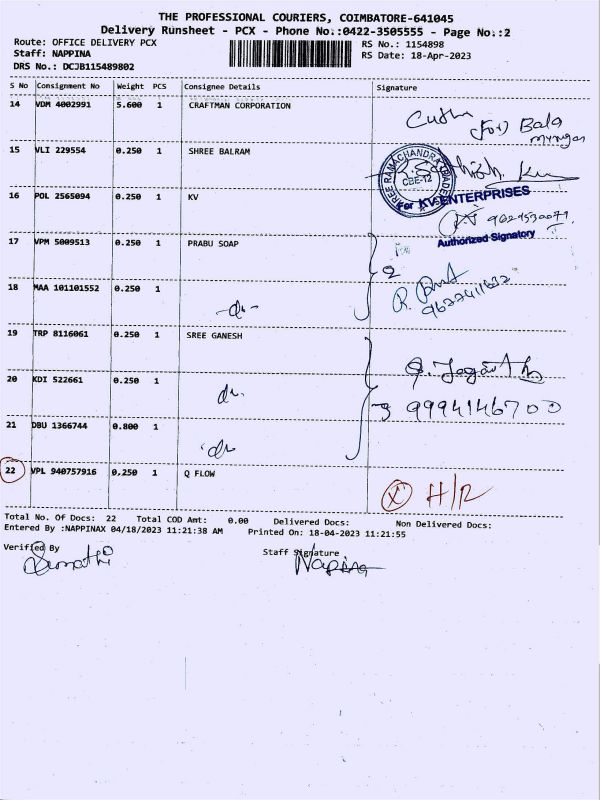 THE PROFESSIONAL COURIERS, COIMBATORE-641045
Delivery Runsheet - PCX - Phone No.:0422-3505555 - Page No.:2
Route: OFFICE DELIVERY PCX
RS No.: 1154898
Staff: NAPPINA
RS Date: 18-Apr-2023
DRS No.: DCJB115489802
S No Consignment No Weight PCS Consignee Details Signature
14 VDM 4002991 5.600 1 CRAFTMAN CORPORATION
(For) Bala
15 VLI 229554 0.250 1 SHREE BALRAM
SHREE RAMACHANDRA TRADERS
CBE-12
16 POL 2565094 0.250 1 KV
For KV ENTERPRISES
Authorized Signatory
17 VPM 5009513 0.250 1 PRABU SOAP
2
18 MAA 101101552 0.250 1
-do-
9677411632
19 TRP 8116061 0.250 1 SREE GANESH
20 KDI 522661 0.250 1
do.
9994146700
21 DBU 1366744 0.800 1
do
22 VPL 940757916 0.250 1 Q FLOW
X H/R
Total No. Of Docs: 22 Total COD Amt: 0.00 Delivered Docs: Non Delivered Docs:
Entered By :NAPPINAX 04/18/2023 11:21:38 AM Printed On: 18-04-2023 11:21:55
Verified By
Staff Signature
Nappina